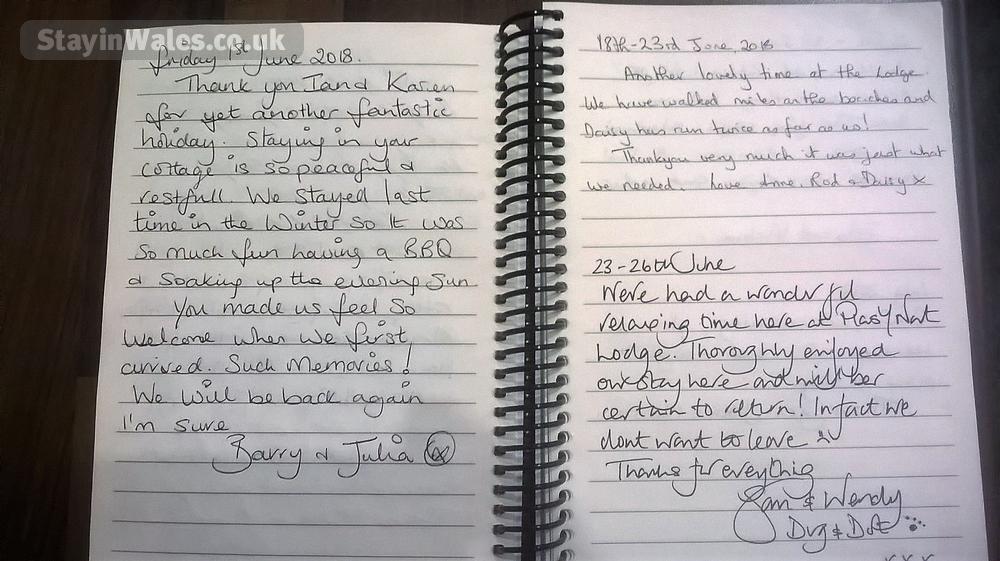 StayinWales.co.uk
Friday 1st June 2018.
Thank you Ian and Karen
for yet another fantastic
holiday. Staying in your
cottage is so peaceful &
restfull. We stayed last
time in the Winter so it was
so much fun having a BBQ
& soaking up the evening sun
You made us feel so
welcome when we first
arrived. Such Memories!
We will be back again
I'm sure
Barry & Julia
18th-23rd June 2018
Another lovely time at the Lodge.
We have walked miles on the beaches and
Daisy has run twice as far as us!
Thankyou very much it was just what
we needed. Love Anne, Rod & Daisy x
23-26th June
We've had a wonderful
relaxing time here at Plas y Nant
Lodge. Thoroghly enjoyed
our stay here and will ber
certain to return! Infact we
dont want to leave
Thanks for everything
& Wendy
x x x